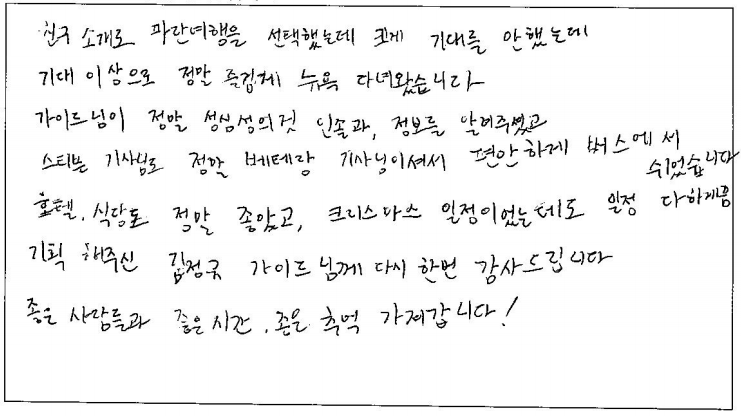 친구 소개로 파란여행을 선택했는데 크게 기대를 안했는데
기대 이상으로 정말 즐겁게 뉴욕 다녀왔습니다
가이드님이 정말 성심성의것 인솔과, 정보를 알려주셨고
스티븐 기사님도 정말 베테랑 기사님이셔서 편안하게 버스에서
쉬었습니다
호텔, 식당도 정말 좋았고, 크리스마스 일정이었는데도 일정 다하게끔
기획 해주신 김정국 가이드님께 다시 한번 감사드립니다
좋은 사람들과 좋은시간, 좋은 추억 가져갑니다!